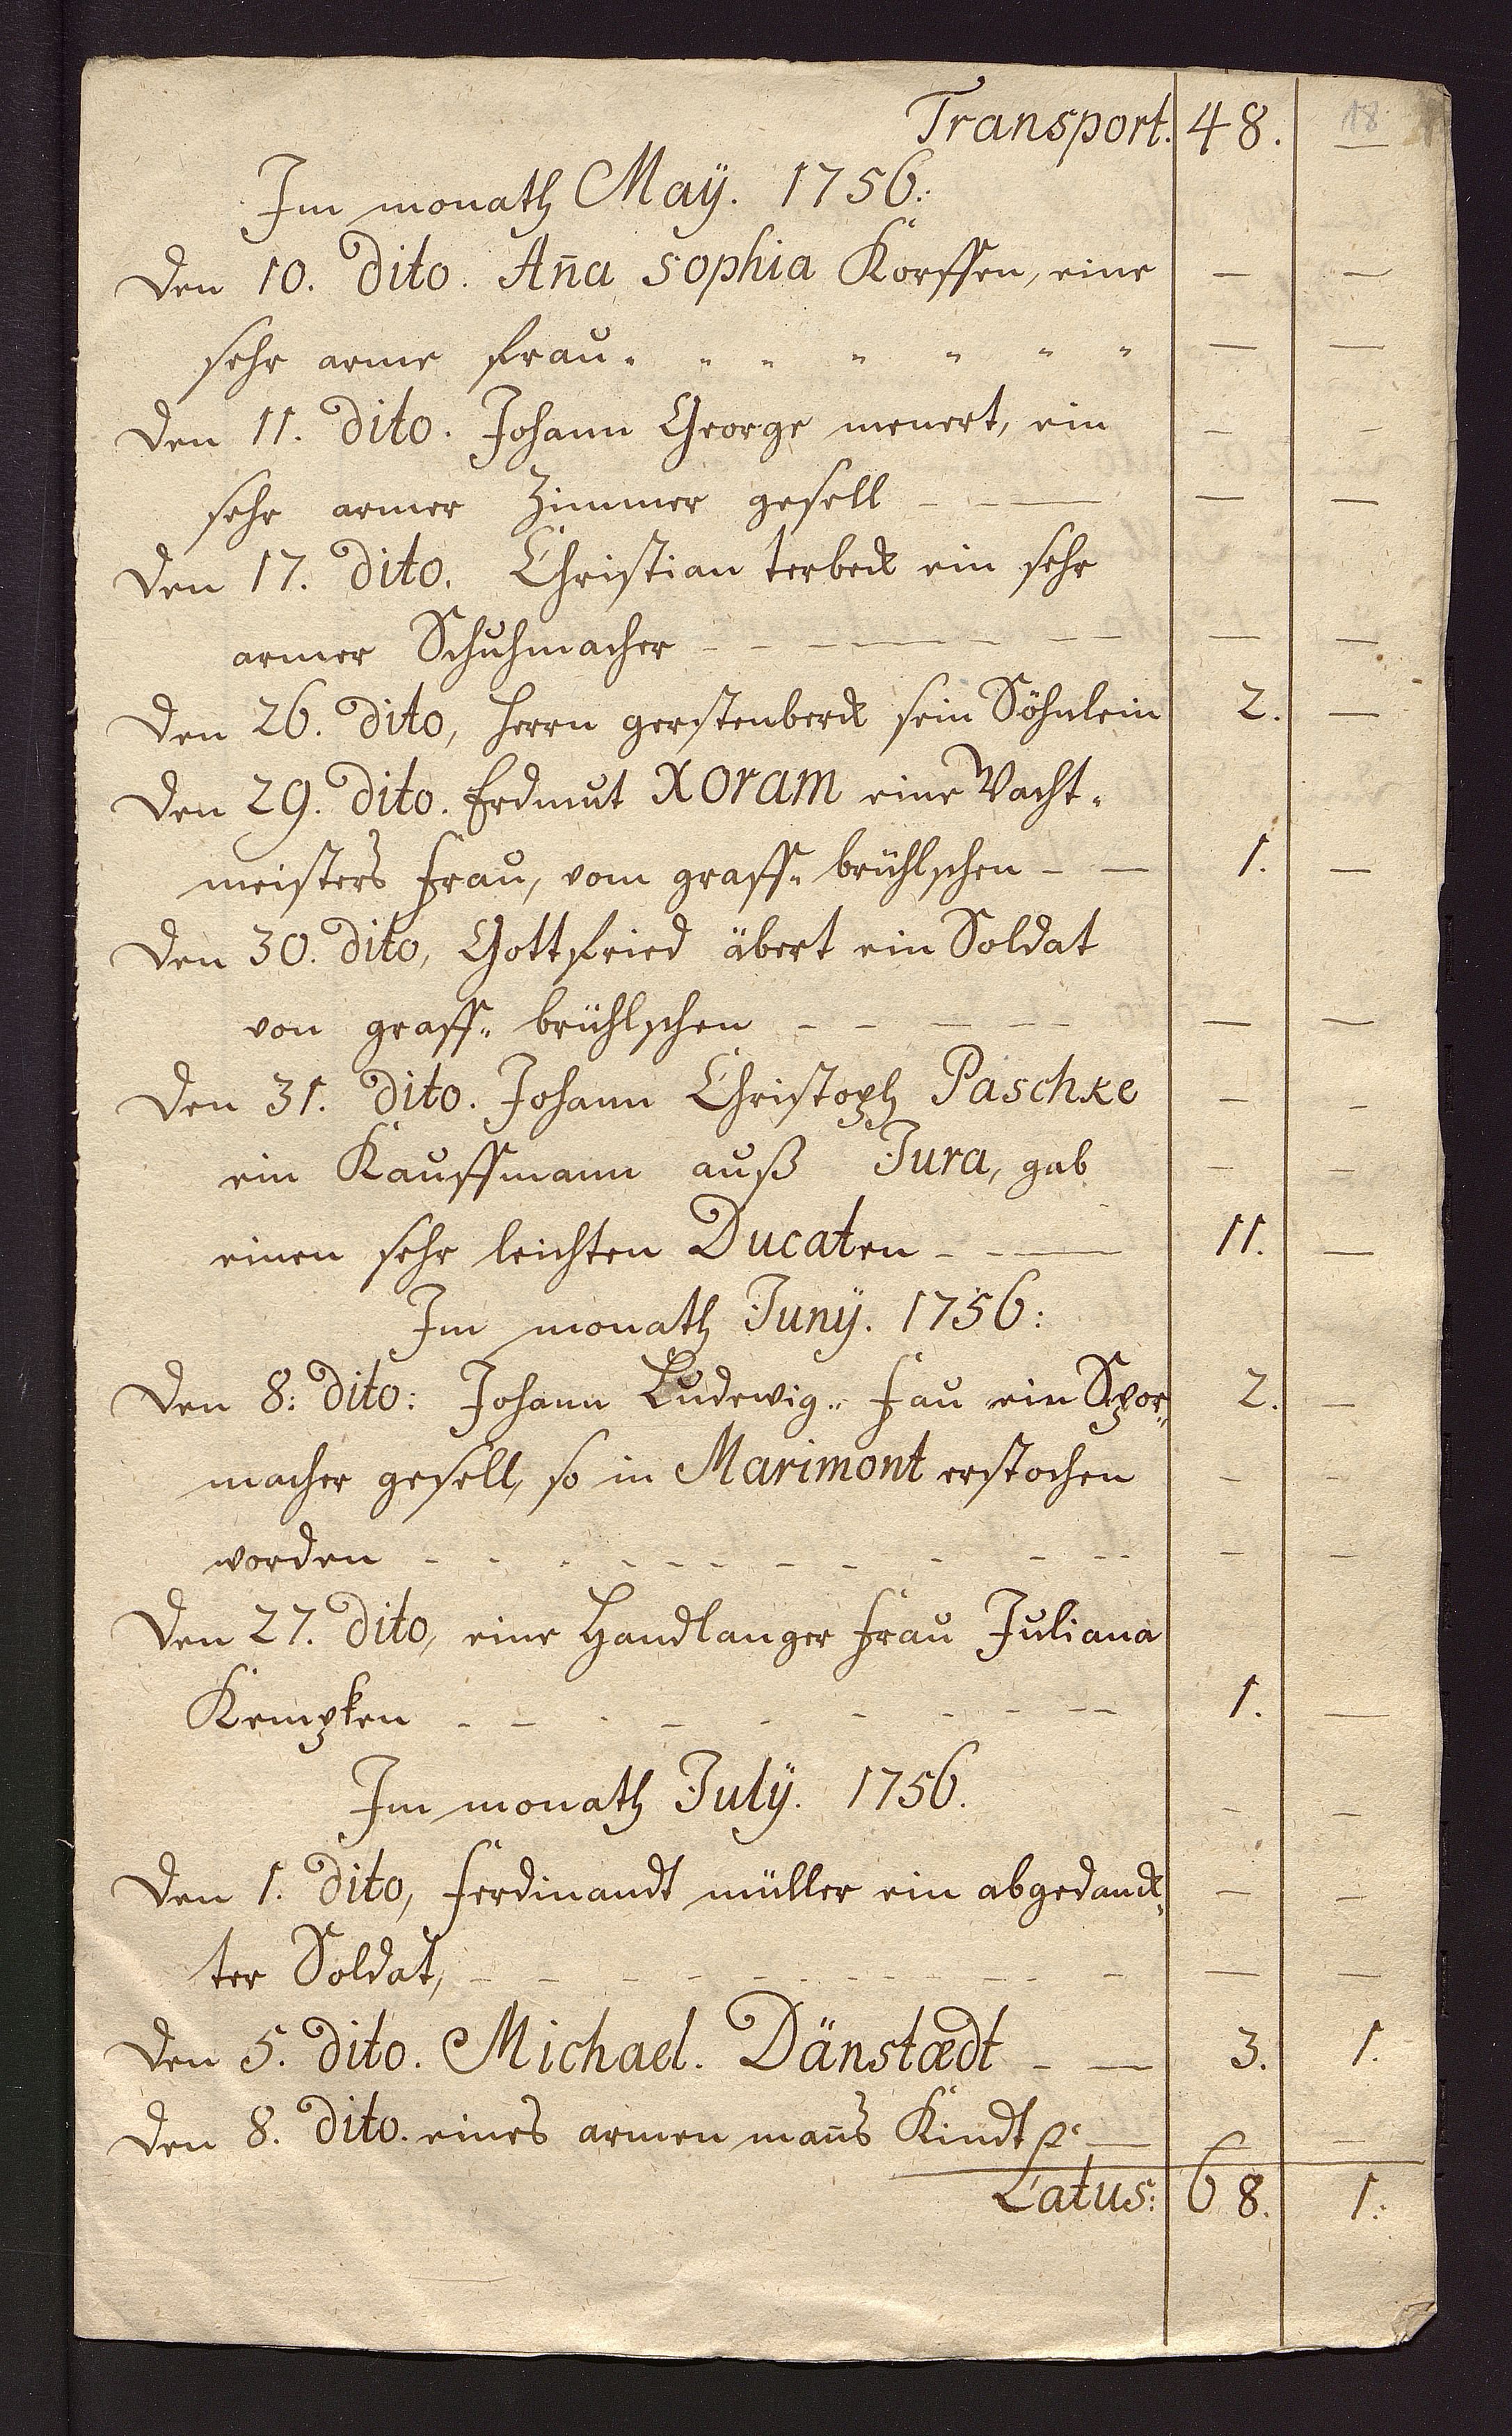 18
Transport. 48. —
Im monath Maÿ. 1756:
Den 10. dito. Aña Sophia Körssen, eine — —
sehr arme frau „ „ „ „ „ „ „ — —
Den 11. dito. Johann George menert, ein - -
sehr armer Zimmer gesell - - — — —
Den 17. dito. Christian terbeck ein sehr
armer Schuhmacher - - - — - - - — —
Den 26. dito, herrn gerstenberck sein Söhnlein 2. —
Den 29. dito. Erdmut Xoram eine Wacht„
meisters frau, vom graff„ brühlschen - — 1. —
Den 30. dito, Gottfried äbert ein Soldat
von graff„ brühlschen - - - - - — —
Den 31. dito. Johann Christoph Paschke - -
ein Kauffmann auß Jura, gab - -
einen sehr leichten Ducaten - - — 11. —
Im monath Junÿ. 1756:
Den 8: dito: Johann Ludewig„ fau ein Spor„ 2. -
macher gesell, so in Marimont erstochen - -
worden - - - - - - - - - - - - -
Den 27. dito, eine Handlanger frau Juliana
Kempken - - - - - - - - - 1. —
Im monath Julÿ. 1756. - -
Den 1. dito, ferdinandt müller ein abgedanck„ - -
ter Soldat, - - - - - - - - - - - — —
Den 5. dito. Michael. Dänstædt - — 3. 1.
Den 8. dito. eines armen mañs Kindt — — —
Latus: 68. 1: